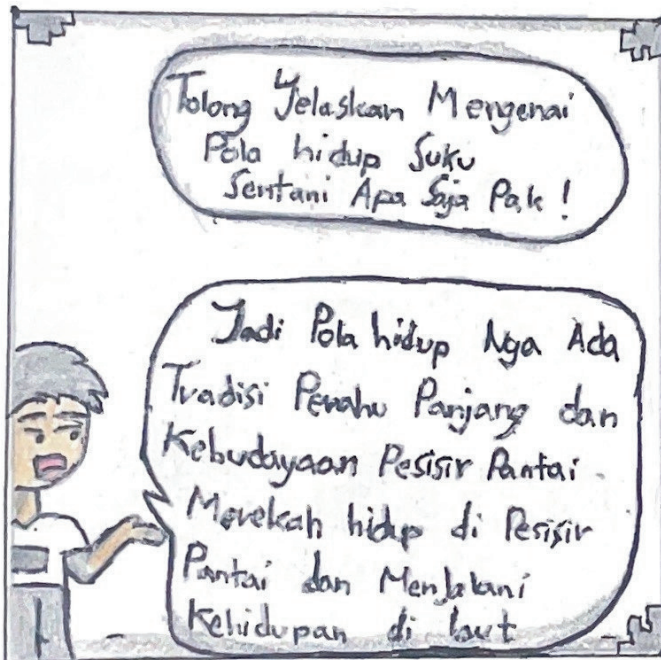 Tolong Jelaskan Mengenai
Pola hidup Suku
Sentani Apa Saja Pak !
Jadi Pola hidup Nya Ada
Tradisi Perahu Panjang dan
Kebudayaan Pesisir Pantai.
Merekah hidup di Pesisir
Pantai dan Menjalani
Kehidupan di laut